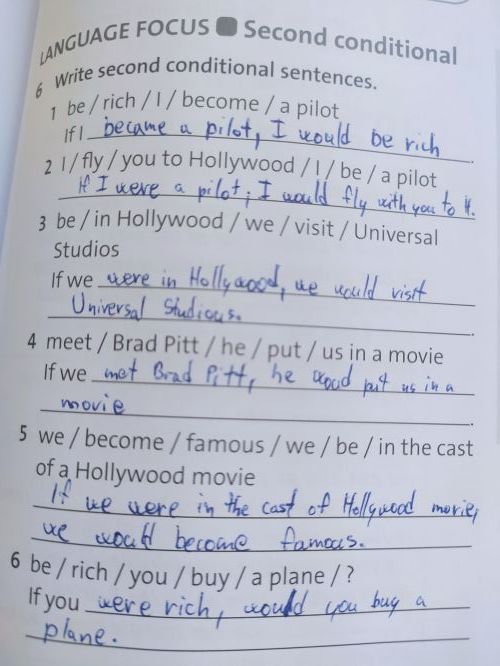 LANGUAGE FOCUS Second conditional
6 Write second conditional sentences.
1 be / rich / I / become / a pilot
If I became a pilot, I would be rich.
2 I / fly / you to Hollywood / I / be / a pilot
If I were a pilot, I would fly with you to H.
3 be / in Hollywood / we / visit / Universal
Studios
If we were in Hollywood, we would visit
Universal Studious.
4 meet / Brad Pitt / he / put / us in a movie
If we met Brad Pitt, he woud put us in a
movie.
5 we / become / famous / we / be / in the cast
of a Hollywood movie
If we were in the cast of Hollywood movie,
we would become famous.
6 be / rich / you / buy / a plane / ?
If you were rich, would you buy a
plane.